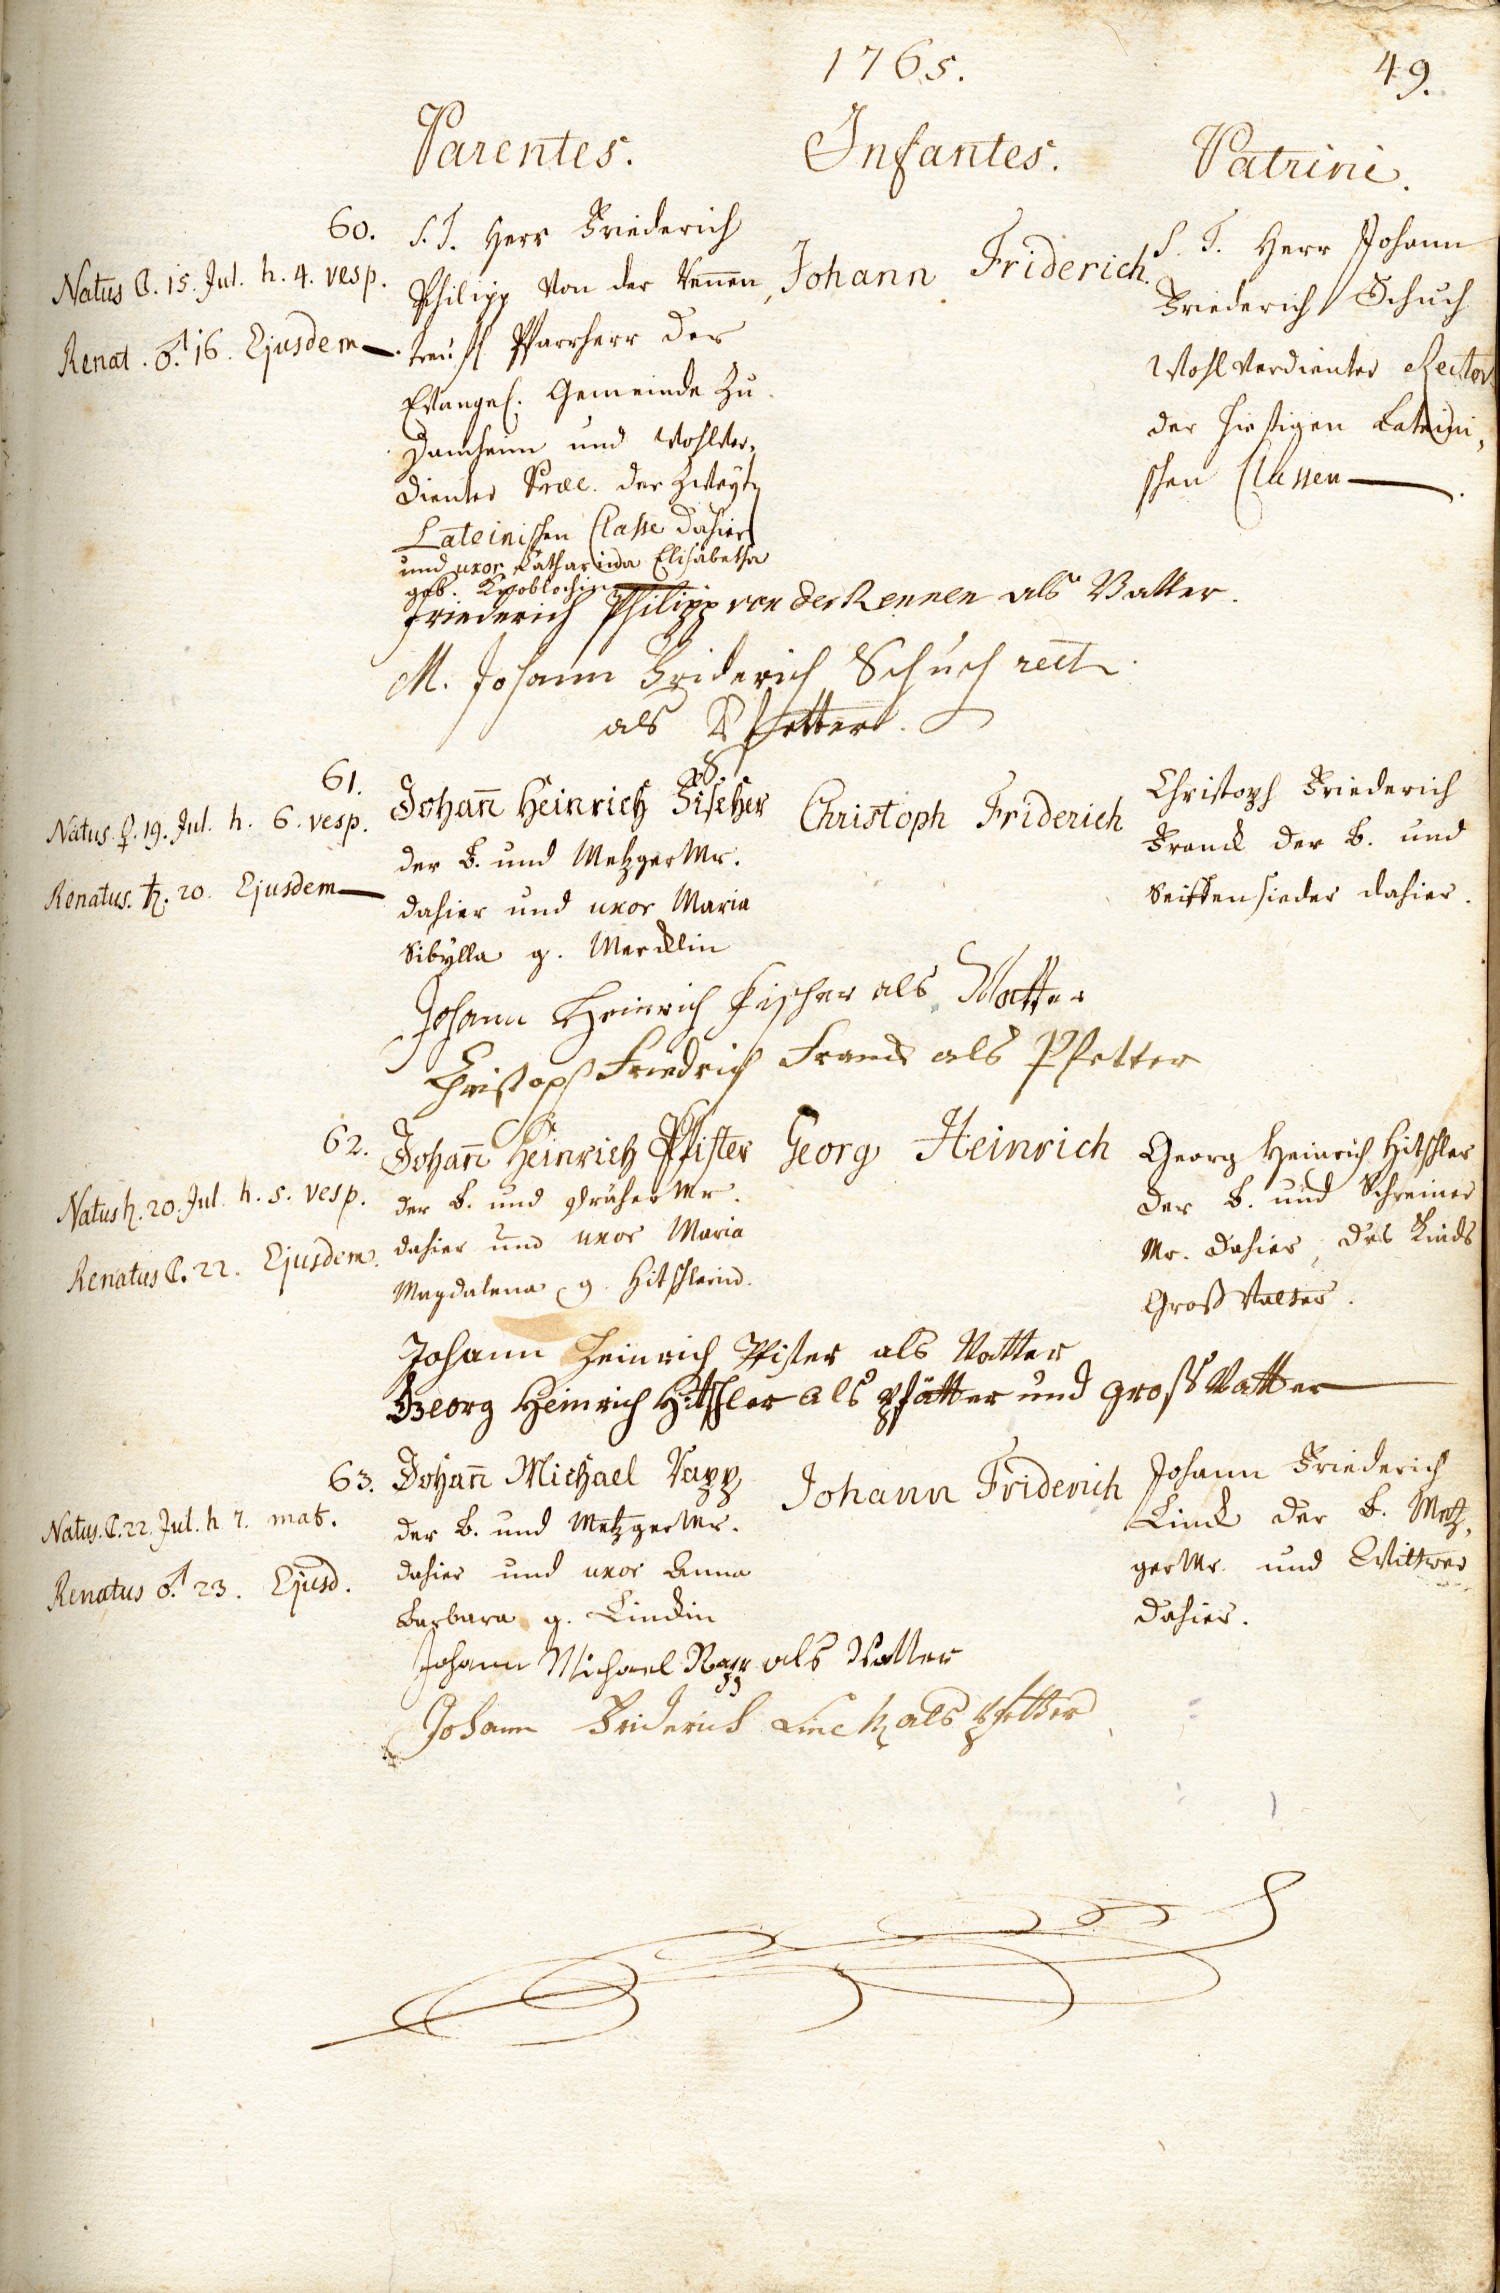 1765.
49.
Parentes.
Infantes.
Patrini.
60.
Natus ☾. 15. Jul. h. 4. vesp.
Renat. ♂. 16. Ejusdem
S. T. Herr Friederich
Philipp von der Rennen,
Pfarrherr der
Evangel. Gemeinde zu
Damheim und wohlver-
dienter Præc. der Zweyt
Lateinischen Classe dahier
und uxor Catharina Elisabetha
geb. Knoblochin
Johann Friderich.
S. T. Herr Johann
Friederich Schuch
wohlverdienter Rector
der hiesigen Lateini-
schen Classen
Friederich Philipp von der Rennen als Vatter.
M. Johann Friderich Schuch rect
als Pfetter.
61.
Natus. ♀. 19. Jul. h. 6. vesp.
Renatus. ♄. 20. Ejusdem
Johan̄ Heinrich Fischer
der B. und MetzgerMr.
dahier und uxor Maria
Sibylla g. Mercklin
Christoph Friderich
Christoph Friederich
Franck der B. und
Seiffensieder dahier.
Johann Heinrich Fischer als Vatter
Christoph Friedrich Franck als Pfetter
62.
Natus ♄. 20. Jul. h. 5. vesp.
Renatus ☾. 22. Ejusdem.
Johan̄ Heinrich Pfister
der B. und DräherMr.
dahier und uxor Maria
Magdalena g. Hitschlerin.
Georg Heinrich
Georg Heinrich Hitschler
der B. und Schreiner
Mr. dahier, des Kinds
Groß Vatter.
Johann Heinrich Pfister als Vatter
Georg Heinrich Hitschler als Pfätter und groß Vatter
63.
Natus. ☾. 22. Jul. h. 7. mat.
Renatus ♂. 23. Ejusd.
Johan̄ Michael Rapp
der B. und MetzgerMr.
dahier und uxor Anna
Barbara g. Linckin
Johann Friderich
Johann Friederich
Linck der B. Metz-
gerMr. und Wittwer
dahier.
Johann Michael Rapp als Vatter
Johann Friderich Linck als Pfetter